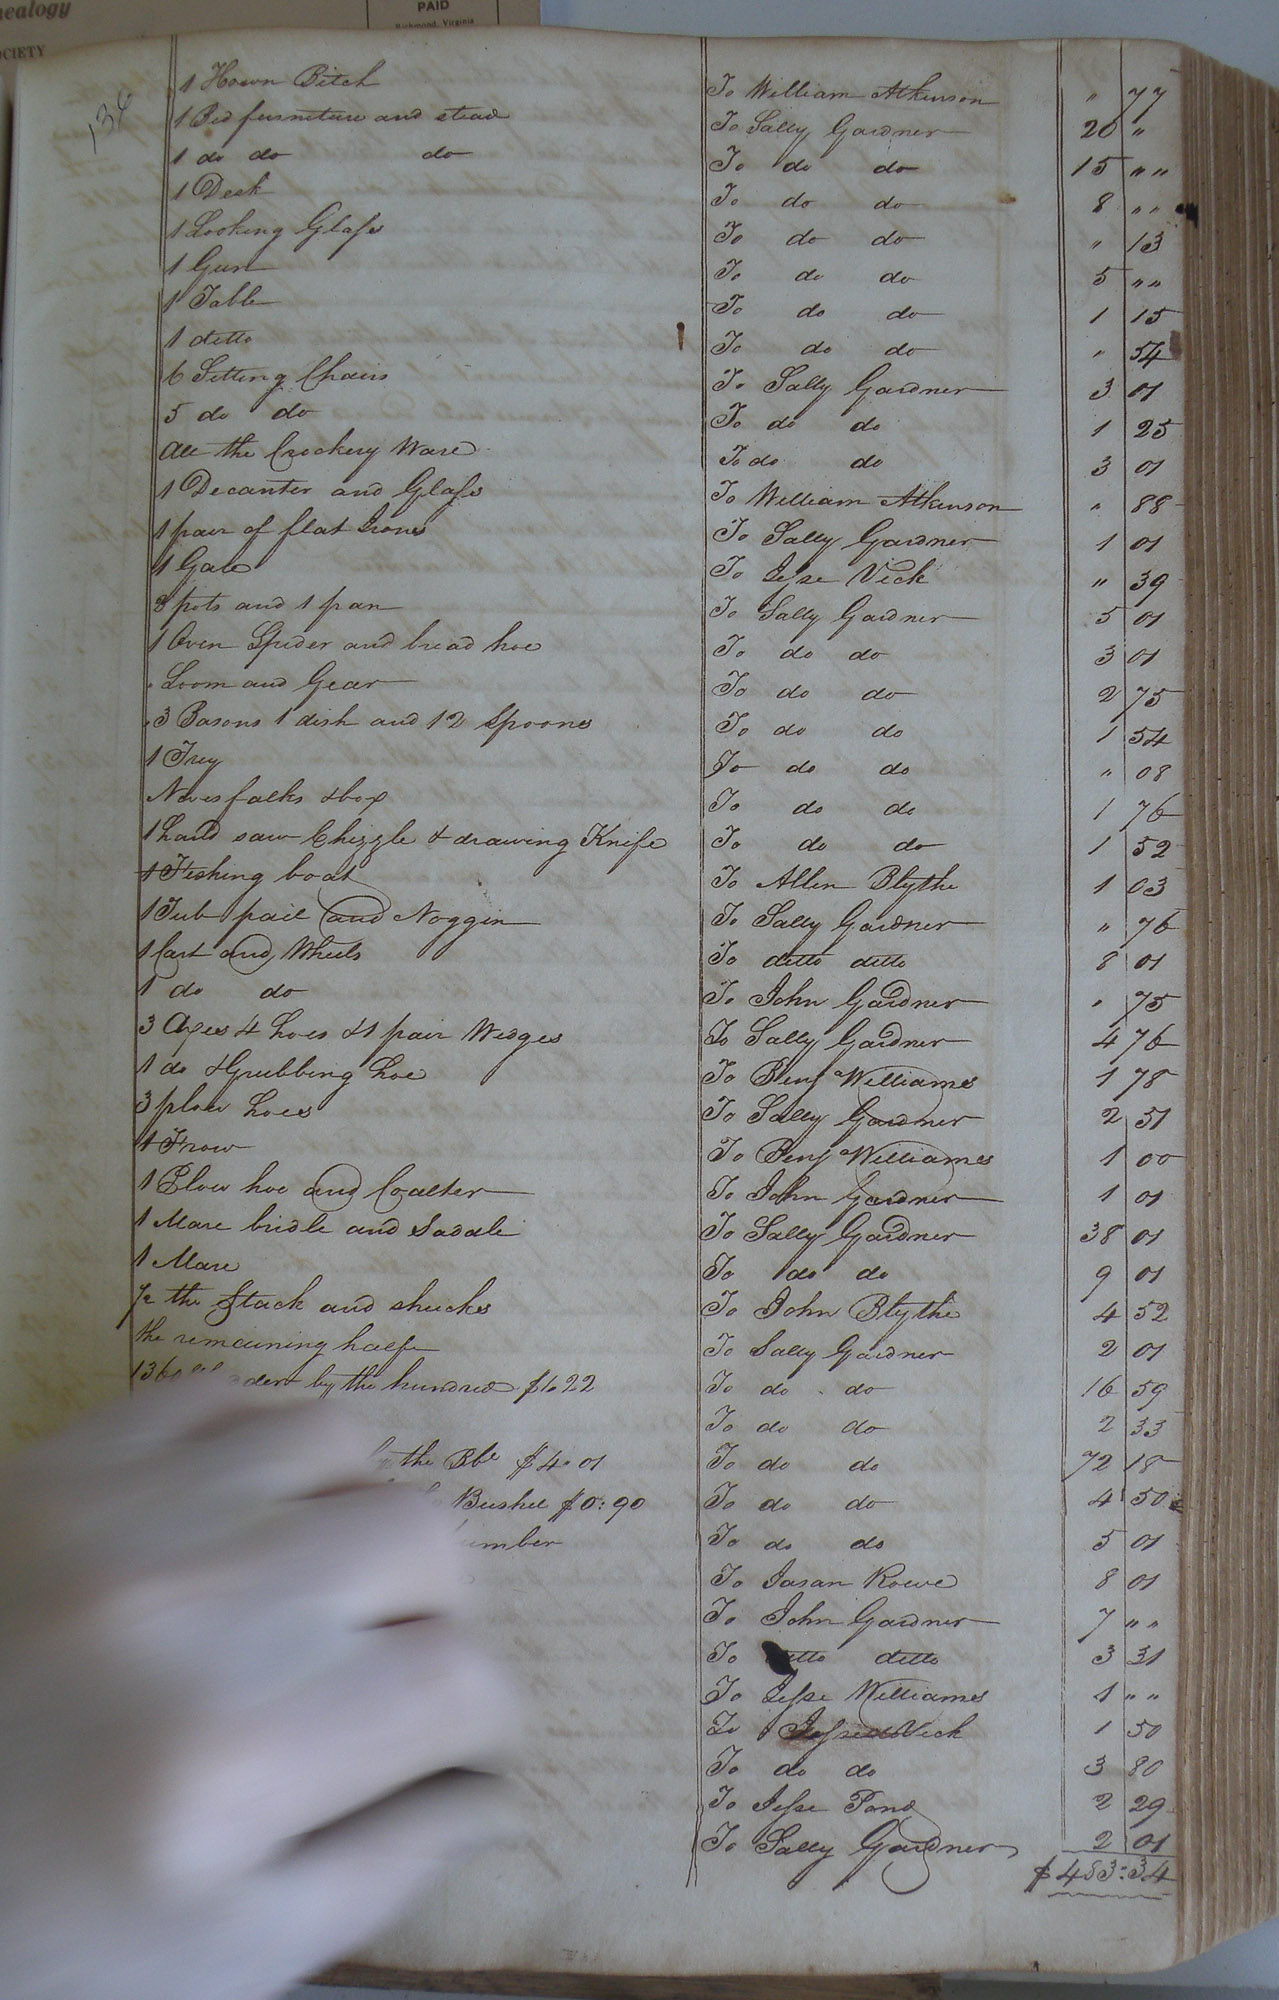 nealogy
OCIETY
PAID
Richmond, Virginia
134
1 Hown Bitch To William Atkinson " 77
1 Bed furniture and stead To Sally Gardner 20 "
1 do do do To do do 15 " "
1 Desk To do do 8 " "
1 Looking Glass To do do " 13
1 Gun To do do 5 " "
1 Table To do do 1 15
1 ditto To do do " 54
6 Setting Chairs To Sally Gardner 3 01
5 do do To do do 1 25
All the Crockery Ware To do do 3 01
1 Decanter and Glass To William Atkinson " 88
1 pair of flat Irons To Sally Gardner 1 01
1 To Jesse Vick " 39
3 pots and 1 pan To Sally Gardner 5 01
1 Oven Spider and bread hoe To do do 3 01
Loom and Gear To do do 2 75
3 Basons 1 dish and 12 Spoons To do do 1 54
1 Trey To do do " 08
Knives forks & box To do do 1 76
1 hand saw Chizzle & drawing Knife To do do 1 52
1 Fishing boat To Allen Blythe 1 03
1 Tub pail and Noggin To Sally Gardner " 76
1 Cart and Wheels To ditto ditto 8 01
1 do do To John Gardner " 75
3 Axes 4 hoes & 1 pair Wedges To Sally Gardner 4 76
1 do & Grubbing hoe To Benja Williams 1 78
3 plow hoes To Sally Gardner 2 51
1 Frow To Benja Williams 1 00
1 Plow hoe and Coalter To John Gardner 1 01
1 Mare bridle and Saddle To Sally Gardner 38 01
1 Mare To do do 9 01
1/2 the Stack and shucks To John Blythe 4 52
the remaining halfe To Sally Gardner 2 01
1360 by the hundred $1.22 To do do 16 59
To do do 2 33
the Bbl $4.01 To do do 72 18
Bushel $0:90 To do do 4 50
umber To do do 5 01
To Jasan Rowe 8 01
To John Gardner 7 " "
To ditto ditto 3 31
To Jesse Williams 1 " "
To Vick 1 50
To do do 3 80
To Jesse Pond 2 29
To Sally Gardner 2 01
$483:34